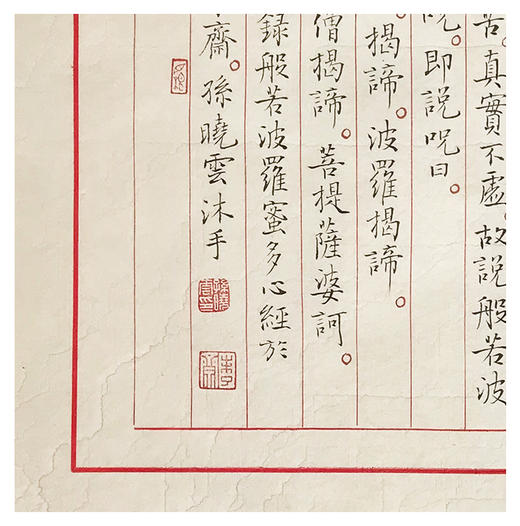 苦。真實不虛。故說般若波
呪。即說呪曰。
揭諦。波羅揭諦。
僧揭諦。菩提薩婆訶。
録般若波羅蜜多心經於
齋孫曉雲沐手